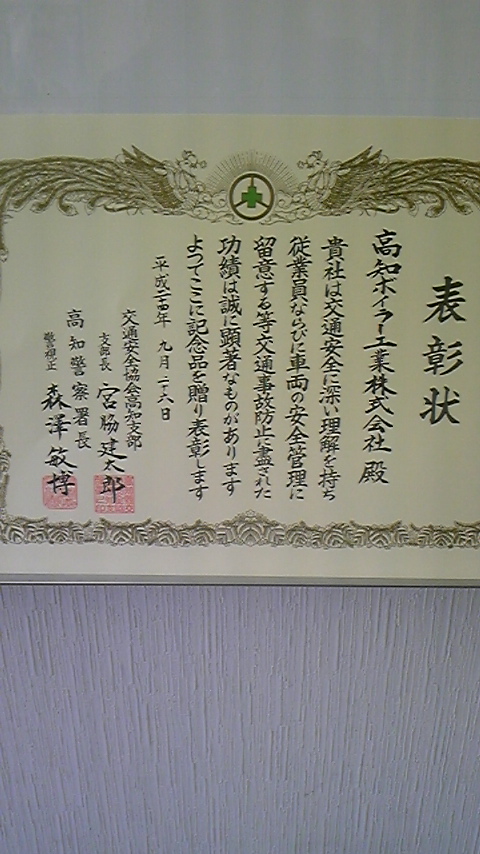 表彰状
高知ボイラー工業株式会社 殿
貴社は交通安全に深い理解を持ち
従業員ならびに車両の安全管理に
留意する等交通事故防止に盡された
功績は誠に顕著なものがあります
よつてここに記念品を贈り表彰します
平成二十四年 九月二十六日
交通安全協会高知支部
支部長 宮脇建太郎
高知警察署長
警視正 森澤敏博